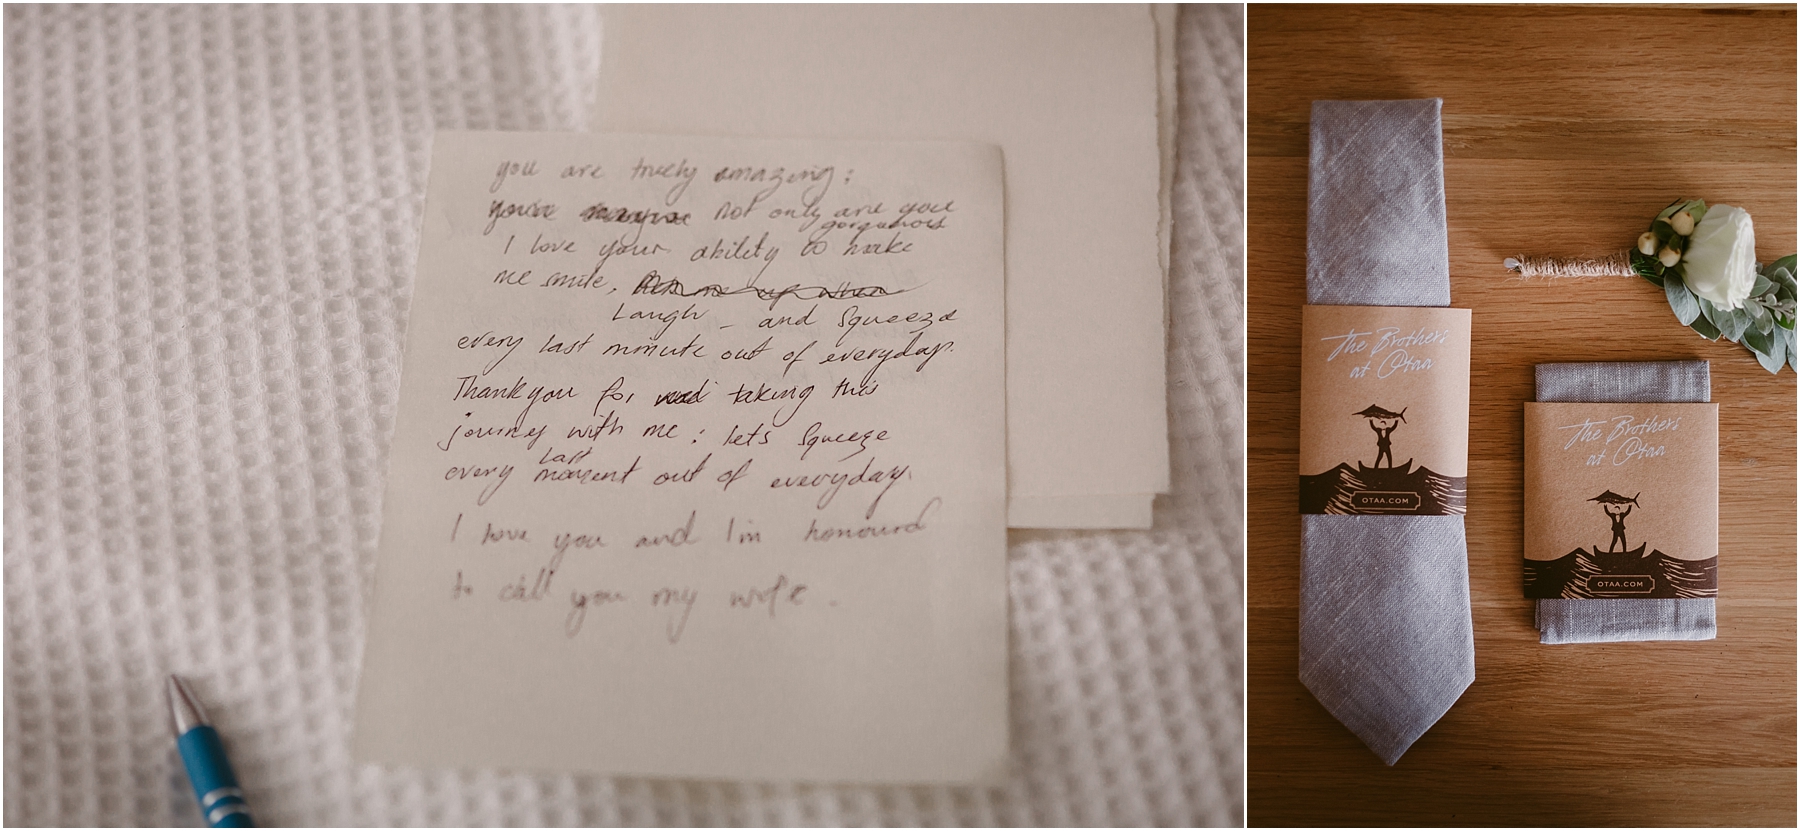 you are truely amazing;
not only are you
gorgumous
I love your ability to make
me smile,
Laugh - and squeeze
every last minute out of everyday.
Thankyou for taking this
journey with me; lets squeeze
last
every moment out of everyday.
I love you and I'm honoured
to call you my wife.
The Brothers
at Otaa
OTAA.COM
The Brothers
at Otaa
OTAA.COM